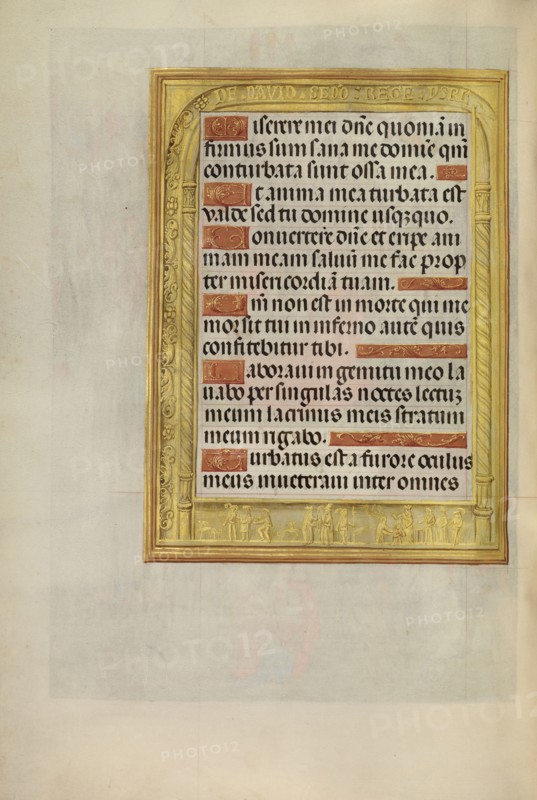 DE DAVID SEDŌ REGE
Miserere mei dn̄e quoniā in
firmus sum sana me domin̄e qm̄
conturbata sunt ossa mea.
Et anima mea turbata est
valde sed tu domine usqꝫquo.
Conuertere dn̄e et eripe ani
mam meam saluū me fac prop
ter misericordiā tuam.
Qm̄ non est in morte qui me
mor sit tui in inferno autē quis
confitebitur tibi.
Laboraui in gemitu meo la
uabo per singulas noctes lectuꝫ
meum lacrimis meis stratum
meum rigabo.
Turbatus est a furore oculus
meus inueteraui inter omnes
PHOTO12